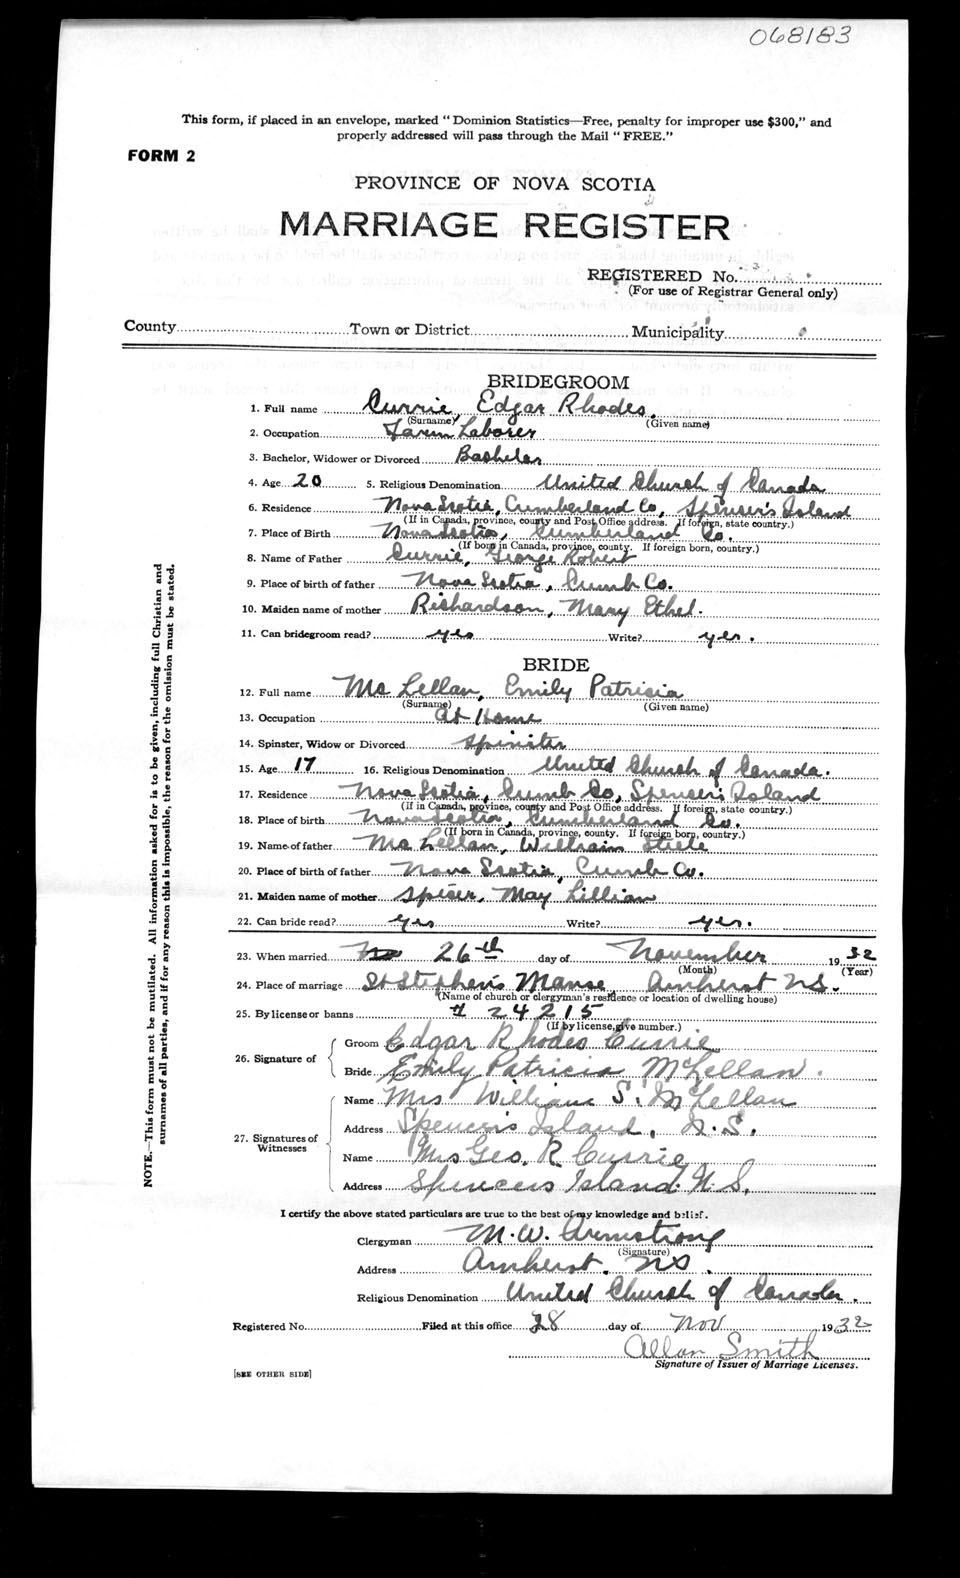 068183
This form, if placed in an envelope, marked "Dominion Statistics—Free, penalty for improper use $300," and
properly addressed will pass through the Mail "FREE."
FORM 2
PROVINCE OF NOVA SCOTIA
MARRIAGE REGISTER
REGISTERED No.
(For use of Registrar General only)
County Town or District Municipality
BRIDEGROOM
1. Full name Currie, Edgar Rhodes.
(Surname) (Given name)
2. Occupation Farm Laborer
3. Bachelor, Widower or Divorced Bachelor
4. Age 20 5. Religious Denomination United Church of Canada
6. Residence Nova Scotia, Cumberland Co, Spenser's Island
(If in Canada, province, county and Post Office address. If foreign, state country.)
7. Place of Birth Nova Scotia, Cumberland Co.
(If born in Canada, province, county. If foreign born, country.)
8. Name of Father Currie, George Robert
9. Place of birth of father Nova Scotia, Cumb Co.
10. Maiden name of mother Richardson, Mary Ethel.
11. Can bridegroom read? yes Write? yes.
BRIDE
12. Full name Mc Lellan, Emily Patricia
(Surname) (Given name)
13. Occupation At Home
14. Spinster, Widow or Divorced Spinster
15. Age 17 16. Religious Denomination United Church of Canada.
17. Residence Nova Scotia, Cumb Co, Spencer's Island
(If in Canada, province, county and Post Office address. If foreign, state country.)
18. Place of birth Nova Scotia, Cumberland Co.
(If born in Canada, province, county. If foreign born, country.)
19. Name of father Mc Lellan, William Steele
20. Place of birth of father Nova Scotia, Cumb Co.
21. Maiden name of mother Spicer, May Lillian
22. Can bride read? yes Write? yes.
23. When married 26th day of November 1932
(Month) (Year)
24. Place of marriage St Stephen's Manse Amherst N.S.
(Name of church or clergyman's residence or location of dwelling house)
25. By license or banns # 24215
(If by license, give number.)
26. Signature of Groom Edgar Rhodes Currie
Bride Emily Patricia McLellan.
27. Signatures of Witnesses Name Mrs William S. McLellan
Address Spencer's Island, N.S.
Name Mrs Geo. R Currie
Address Spencers Island. N.S.
I certify the above stated particulars are true to the best of my knowledge and belief.
Clergyman M. W. Armstrong
(Signature)
Address Amherst, NS.
Religious Denomination United Church of Canada.
Registered No. Filed at this office 28 day of Nov 1932
Allan Smith
Signature of Issuer of Marriage Licenses.
[SEE OTHER SIDE]
NOTE.—This form must not be mutilated. All information asked for is to be given, including full Christian and
surnames of all parties, and if for any reason this is impossible, the reason for the omission must be stated.